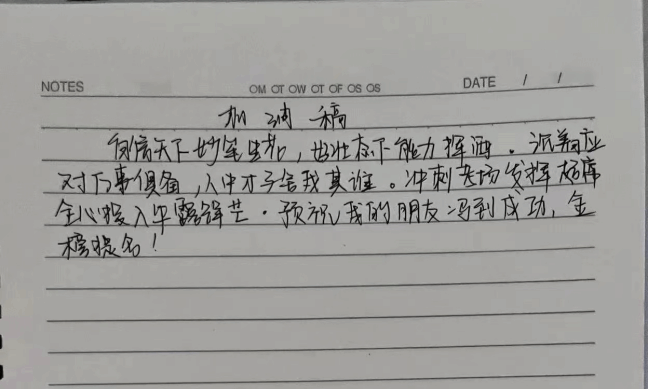 NOTES OM OT OW OT OF OS OS DATE / /
加油稿
自信天下妙笔生花，好状态下能力挥洒。沉着应
对万事俱备，人中才子舍我其谁。冲刺考场发挥超常
全心投入毕露锋芒。预祝我的朋友马到成功，金
榜提名！